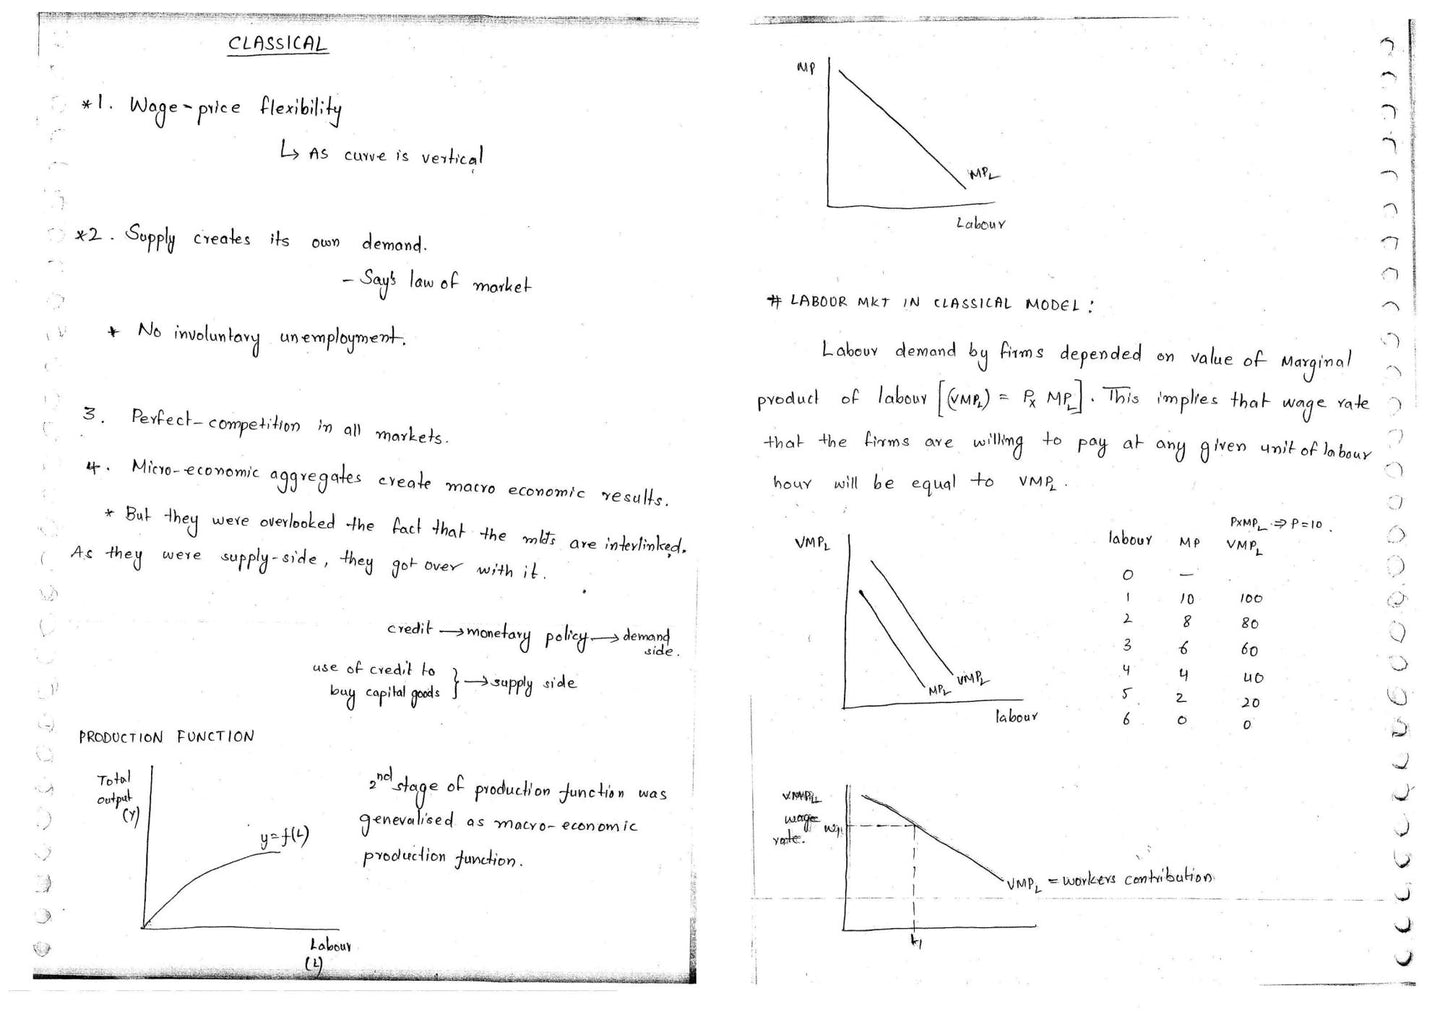 CLASSICAL
*1. Wage-price flexibility
↳ AS curve is vertical
*2. Supply creates its own demand.
- Say's law of market
* No involuntary unemployment.
3. Perfect-competition in all markets.
4. Micro-economic aggregates create macro economic results.
* But they were overlooked the fact that the mkts are interlinked.
As they were supply-side, they got over with it.
credit → monetary policy → demand
side.
use of credit to
buy capital goods } → supply side
PRODUCTION FUNCTION
Total
output
(Y)
y=f(L)
Labour
(L)
2nd stage of production function was
generalised as macro-economic
production function.
MP
MPL
Labour
# LABOUR MKT IN CLASSICAL MODEL :
Labour demand by firms depended on value of Marginal
product of labour [(VMPL) = Px MPL]. This implies that wage rate
that the firms are willing to pay at any given unit of labour
hour will be equal to VMPL.
VMPL
MPL
VMPL
labour
PXMPL ⇒ P=10.
labour MP VMPL
0 —
1 10 100
2 8 80
3 6 60
4 4 40
5 2 20
6 0 0
wage
rate.
W1
VMPL = workers contribution
L1